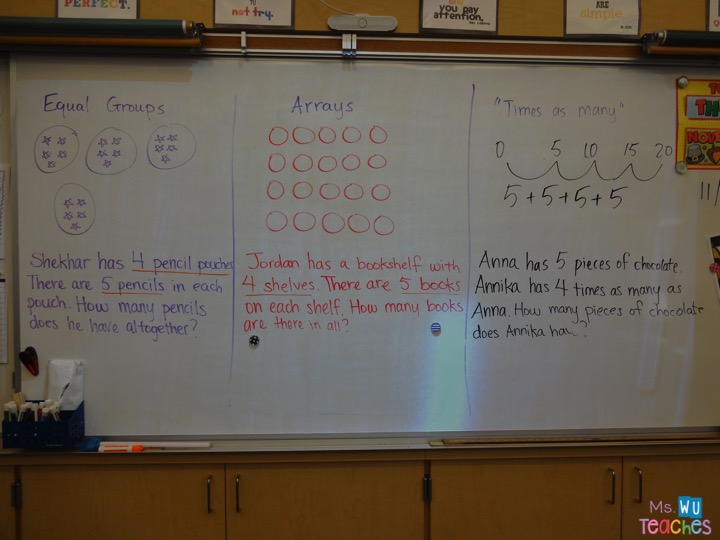 PERFECT.
TO
not try.
you pay
attention.
ARE
simple.
Equal Groups
Shekhar has 4 pencil pouches
There are 5 pencils in each
pouch. How many pencils
does he have altogether?
Arrays
Jordan has a bookshelf with
4 shelves. There are 5 books
on each shelf. How many books
are there in all?
"Times as many"
0 5 10 15 20
5+5+5+5
Anna has 5 pieces of chocolate.
Annika has 4 times as many as
Anna. How many pieces of chocolate
does Annika
11/
Ms. WU
TEACHES